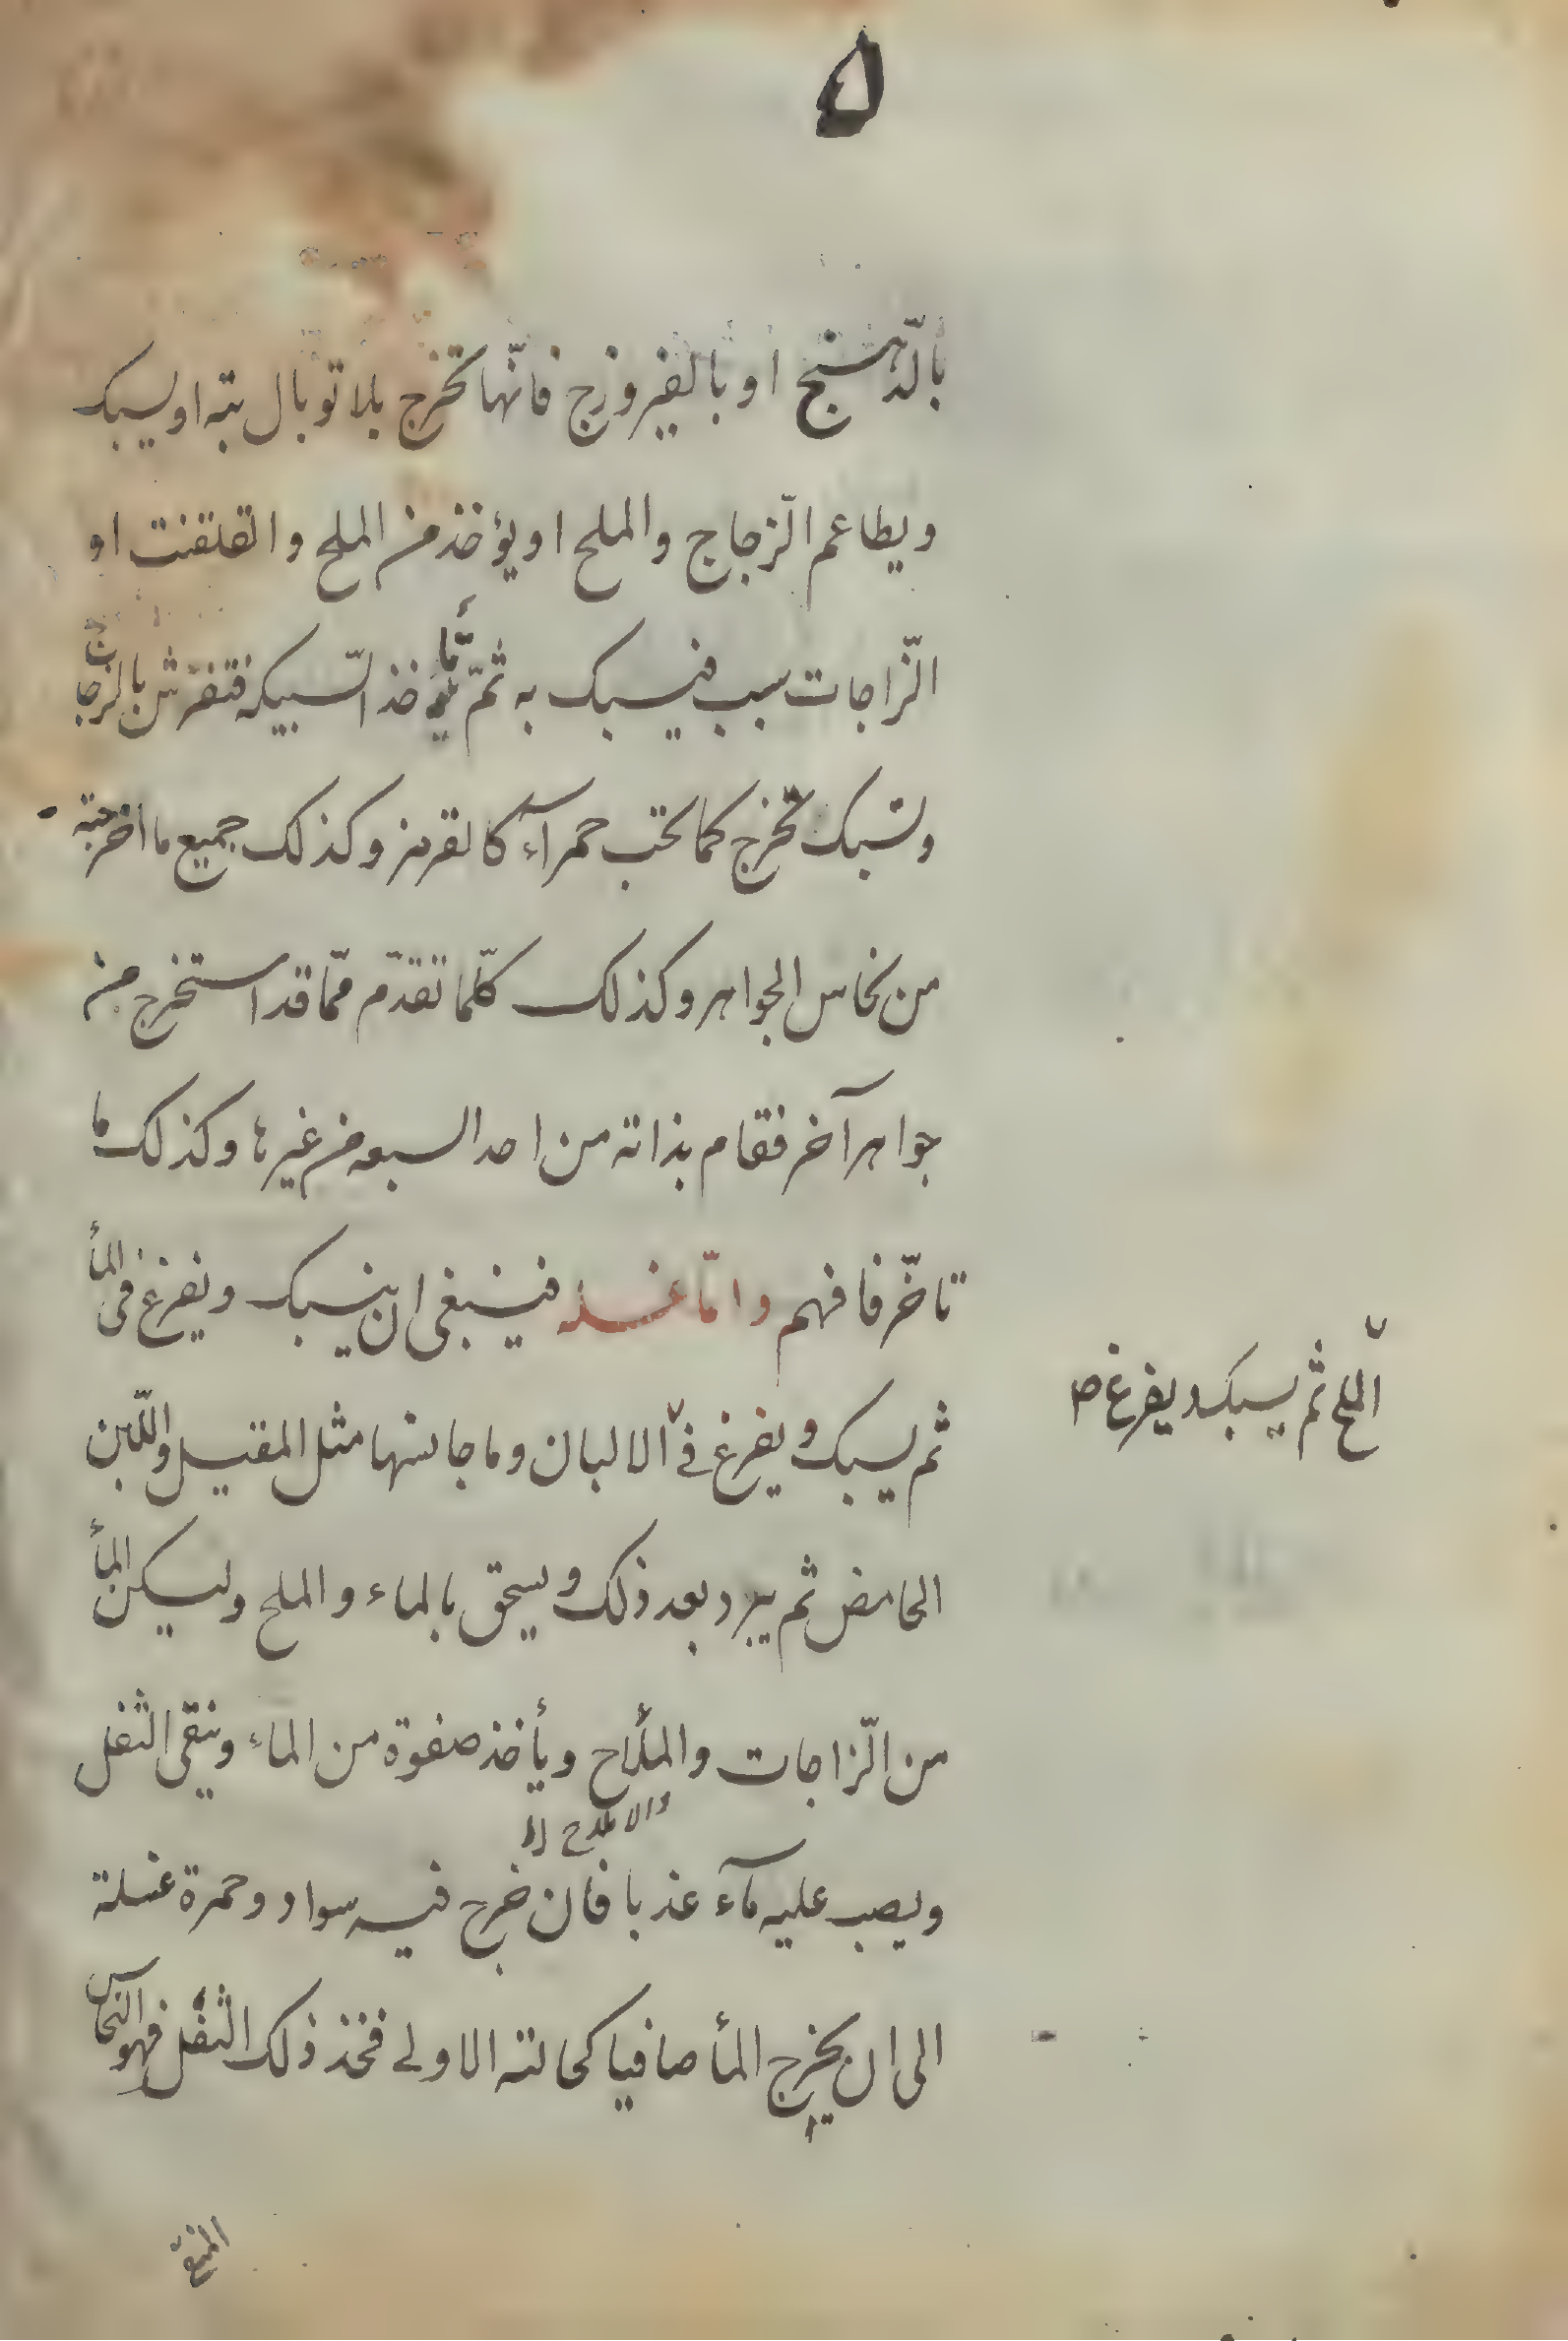 ۵
بالدّهنج او بالفيروزج فانّها تخرج بلا توبال بتة او يسبك
ويطاعم الزّجاج والملح او يؤخذ من الملح والقلقنت او
الزّاجات سبب فيسبك به ثمّ يؤخذ السّبيكه فتفرّش بالزجاج
وتسبك تخرج كما تحب حمرآء كالقرمز وكذلك جميع ما اخرجته
من نحاس الجواهر وكذلك كلّما تقدّم ممّا قد استخرج من
جواهر آخر فقام بذاته من احد السبعه من غيرها وكذلك ما
تاخّر فافهم وامّا غسله فينبغى ان يسبك ويفرغ فى المأ
ثم يسبك ويفرغ فى الالبان وما جانسها مثل المقيل واللّبن
الحامض ثم يبرد بعد ذلك ويسحق بالماء والملح وليكن المأ
من الزّاجات والملأح ويأخذ صفوة من الماء وينقى الثفل
والاملاح
ويصب عليه مآء عذبا فان خرج فيه سواد وحمرة غسلته
الى ان يخرج المأ صافيا كحالته الاولى فخذ ذلك الثفل فهو النحاس
الملح ثم يسبك ويفرغ ص
المنقى